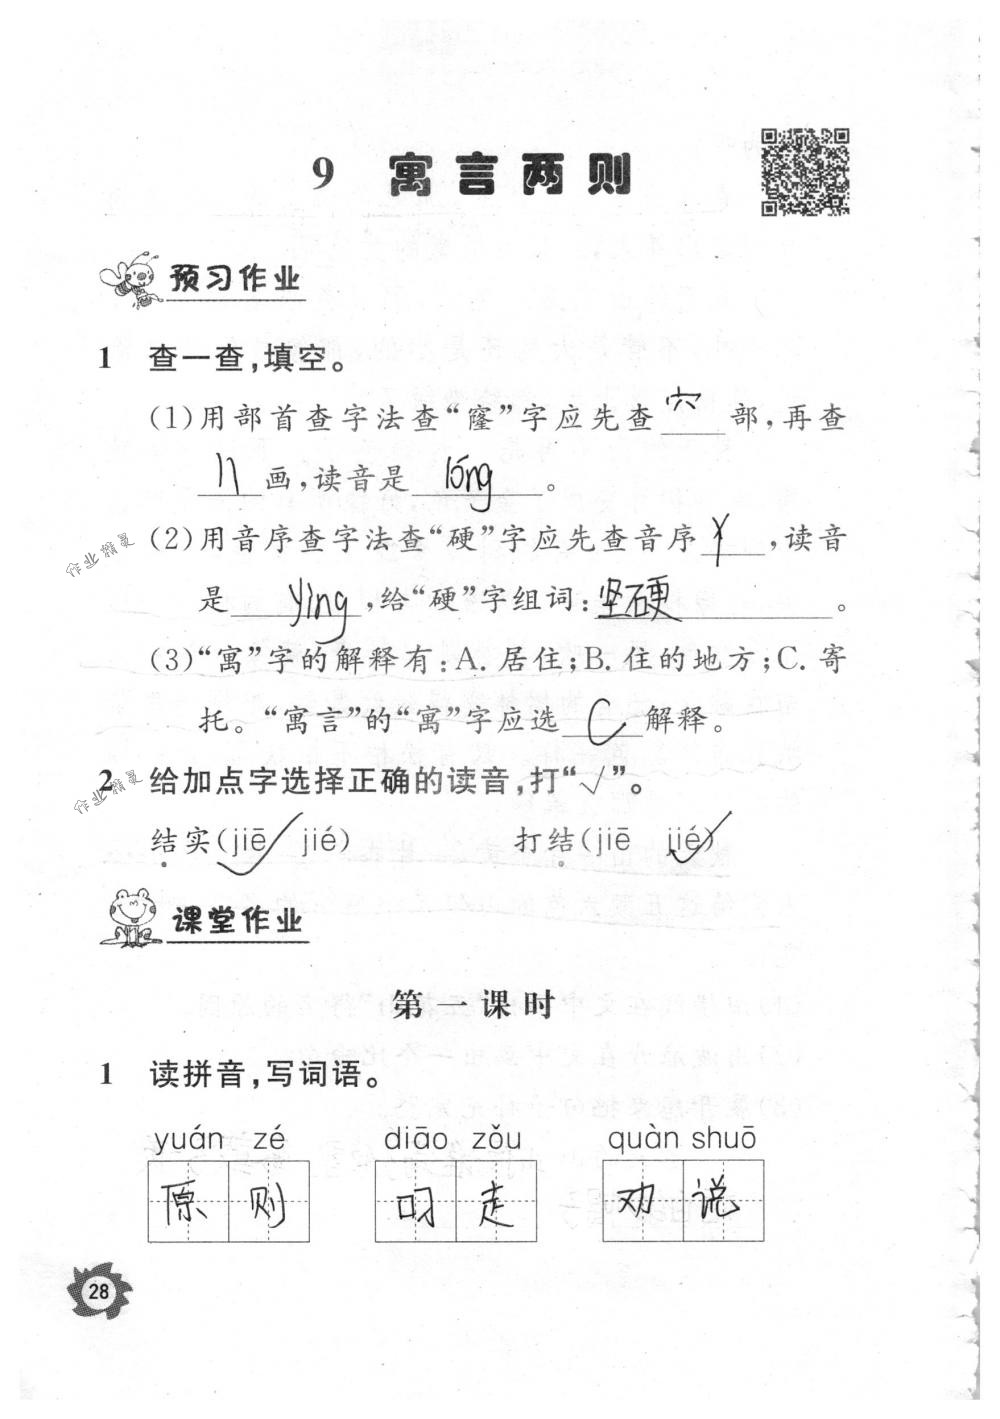 9 寓言两则
预习作业
1 查一查,填空。
(1)用部首查字法查“窿”字应先查 穴 部,再查
11 画,读音是 lóng 。
(2)用音序查字法查“硬”字应先查音序 Y ,读音
是 yìng ,给“硬”字组词: 坚硬 。
(3)“寓”字的解释有:A. 居住;B. 住的地方;C. 寄
托。“寓言”的“寓”字应选 C 解释。
2 给加点字选择正确的读音,打“√”。
结实(jiē√ jié) 打结(jiē jié√)
课堂作业
第一课时
1 读拼音,写词语。
yuán zé diāo zǒu quàn shuō
原则 叼走 劝说
28
作业精灵
作业精灵